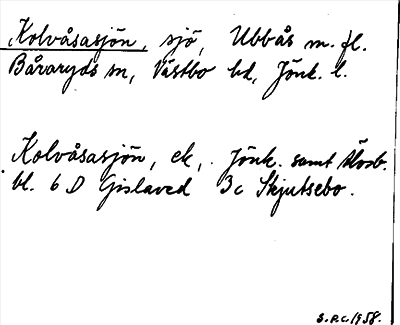 Kolvåsasjön, sjö, Ubbås m. fl.
Båraryds sn, Västbo hd, Jönk. l.
Kolvåsasjön, ek, Jönk. samt Älvsb.
bl. 6 D Gislaved 3c Skjutsebo.
S.R.C. 1958.